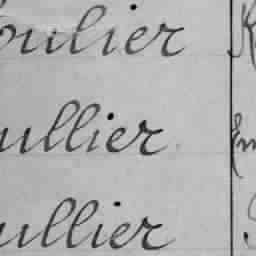 oulier
ullier
ullier